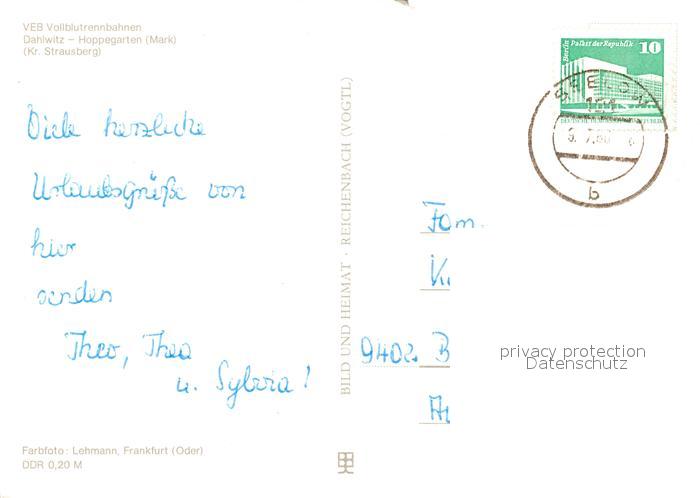 VEB Vollblutrennbahnen
Dahlwitz – Hoppegarten (Mark)
(Kr. Strausberg)
Viele herzliche
Urlaubsgrüße von
hier
senden
Theo, Thea
u. Sylvia!
BILD UND HEIMAT · REICHENBACH (VOGTL)
Berlin Palast der Republik 10
DEUTSCHE DEMOKRATISCHE REPUBLIK
b
Fam.
9402 B
privacy protection
Datenschutz
Farbfoto: Lehmann, Frankfurt (Oder)
DDR 0,20 M